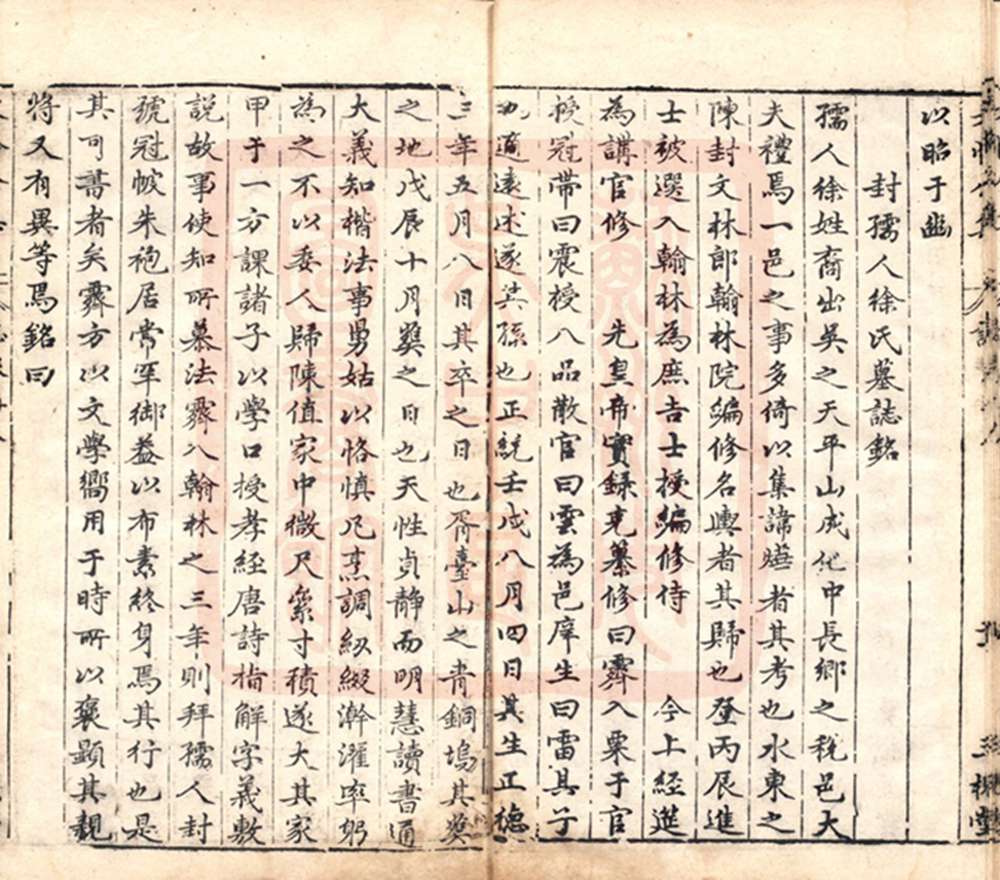 以昭于幽
封孺人徐氏墓誌銘
孺人徐姓裔出吳之天平山成化中長鄉之稅邑大
夫禮焉一邑之事多倚以集諱㜣者其考也水東之
陳封文林郎翰林院編修名輿者其歸也登丙辰進
士被選入翰林為庶吉士授編修侍 今上經進
為講官修 先皇帝實錄充纂修曰霽入粟于官
授冠帶曰震授八品散官曰雲為邑庠生曰雷其子
也適遠述遂其孫也正統壬戌八月四日其生正德
三年五月八日其卒之日也胥臺山之青銅塢其葬
之地戊辰十月葬之日也天性貞靜而明慧讀書通
大義知楷法事舅姑以恪慎凡烹調紉綴澣濯率躬
為之不以委人歸陳值家中微尺絫寸積遂大其家
甲于一方課諸子以學口授孝經唐詩指解字義敷
說故事使知所慕法霽入翰林之三年則拜孺人封
號冠帔朱袍居常罕御葢以布素終身焉其行也是
其可書者矣霽方以文學嚮用于時所以褒顯其親
將又有異等焉銘曰